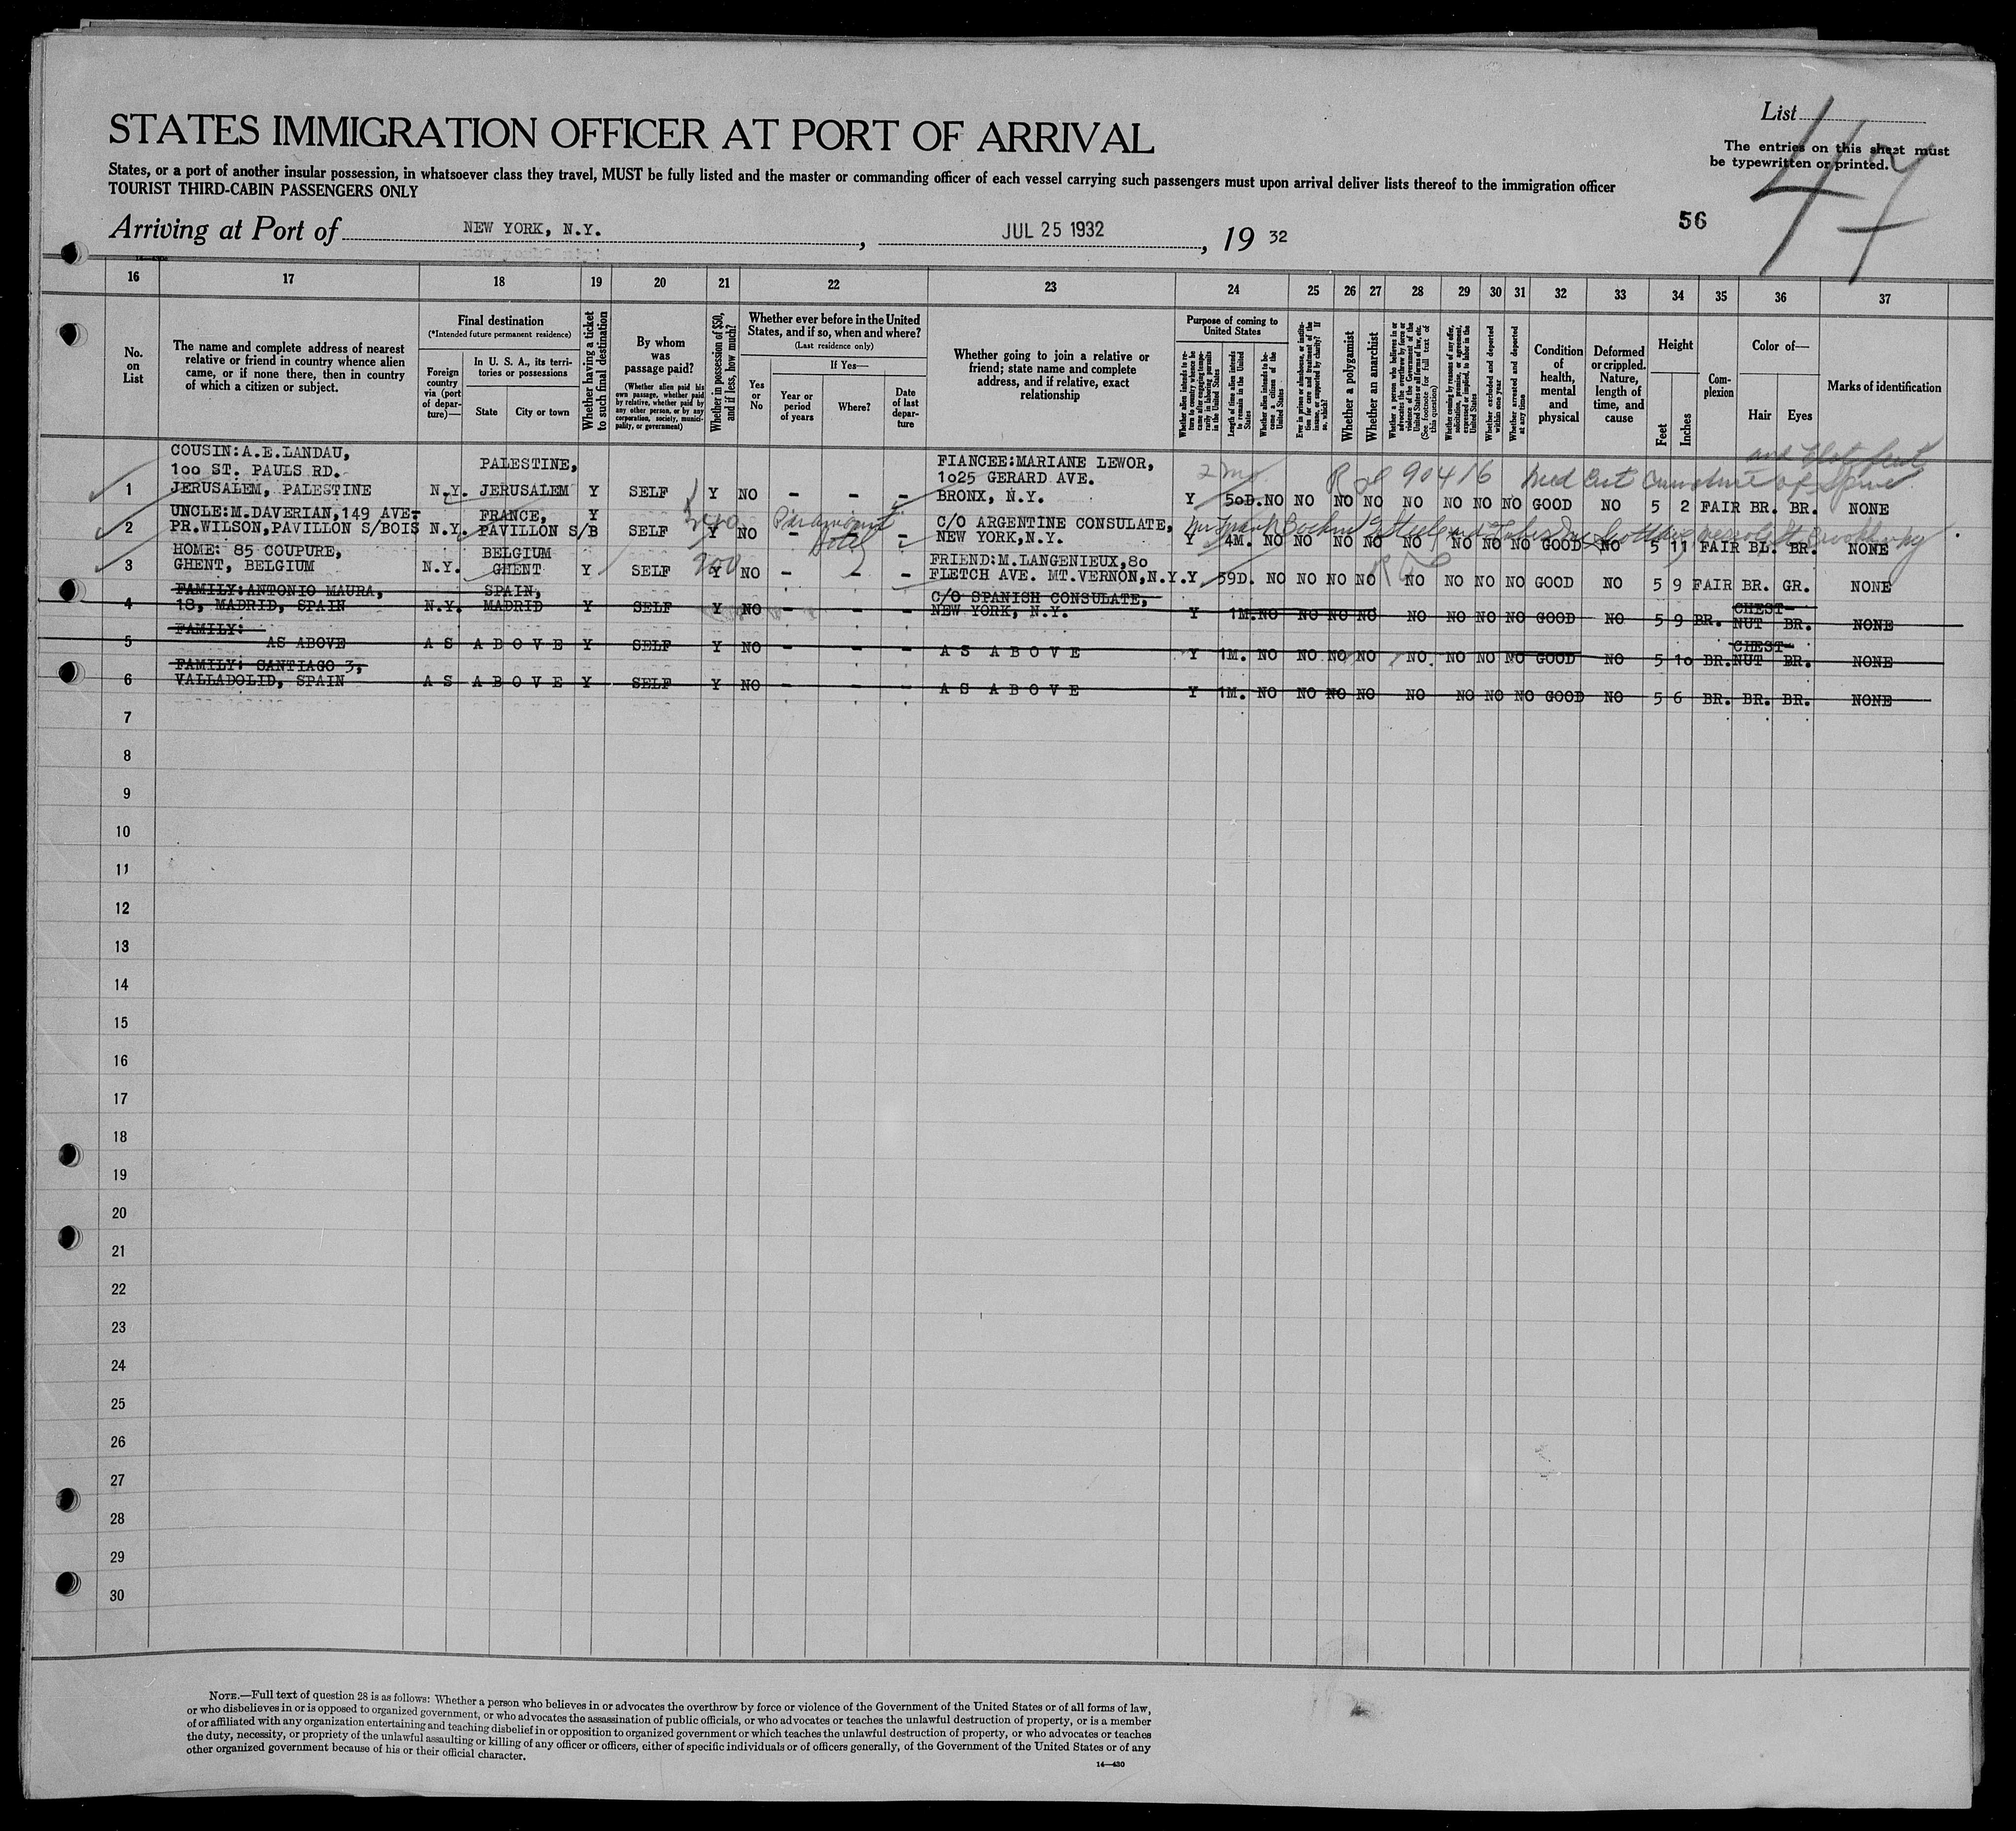 List
47
STATES IMMIGRATION OFFICER AT PORT OF ARRIVAL
The entries on this sheet must
be typewritten or printed.
States, or a port of another insular possession, in whatsoever class they travel, MUST be fully listed and the master or commanding officer of each vessel carrying such passengers must upon arrival deliver lists thereof to the immigration officer
TOURIST THIRD-CABIN PASSENGERS ONLY
56
Arriving at Port of NEW YORK, N.Y., JUL 25 1932, 19 32
16 17 18 19 20 21 22 23 24 25 26 27 28 29 30 31 32 33 34 35 36 37
No. on List
The name and complete address of nearest
relative or friend in country whence alien
came, or if none there, then in country
of which a citizen or subject.
Final destination
(*Intended future permanent residence)
Foreign country via (port of departure)—
In U. S. A., its territories or possessions
State
City or town
Whether having a ticket to such final destination
By whom was passage paid?
(Whether alien paid his own passage, whether paid by relative, whether paid by any other person, or by any corporation, society, municipality, or government)
Whether in possession of $50, and if less, how much?
Whether ever before in the United
States, and if so, when and where?
(Last residence only)
Yes or No
If Yes—
Year or period of years
Where?
Date of last departure
Whether going to join a relative or
friend; state name and complete
address, and if relative, exact
relationship
Purpose of coming to United States
Whether alien intends to return to country whence he came after engaging temporarily in laboring pursuits in the United States
Length of time alien intends to remain in the United States
Whether alien intends to become a citizen of the United States
Ever in prison or almshouse, or institution for care and treatment of the insane, or supported by charity? If so, which?
Whether a polygamist
Whether an anarchist
Whether a person who believes in or advocates the overthrow by force or violence of the Government of the United States or all forms of law, etc. (See footnote for full text of this question)
Whether coming by reasons of any offer, solicitation, promise, or agreement, expressed or implied, to labor in the United States
Whether excluded and deported within one year
Whether arrested and deported at any time
Condition of health, mental and physical
Deformed or crippled. Nature, length of time, and cause
Height
Feet
Inches
Complexion
Color of—
Hair
Eyes
Marks of identification
COUSIN:A.E.LANDAU, FIANCEE:MARIANE LEWOR, and flat feet
100 ST. PAULS RD. PALESTINE, 1025 GERARD AVE. 2 mo 90416 Med Cert Curvature of Spine
1 JERUSALEM, PALESTINE N.Y. JERUSALEM Y SELF Y NO - - - BRONX, N.Y. Y 50D. NO NO NO NO NO NO NO NO GOOD NO 5 2 FAIR BR. BR. NONE
UNCLE:M.DAVERIAN,149 AVE- FRANCE, Y 240 Paramount Hotel C/O ARGENTINE CONSULATE,
2 PR.WILSON,PAVILLON S/BOIS N.Y. PAVILLON S/B SELF Y NO - - - NEW YORK,N.Y. Y 4M. NO NO NO NO NO NO NO NO GOOD NO 5 11 FAIR BL. BR. NONE
HOME: 85 COUPURE, BELGIUM 200 FRIEND:M.LANGENIEUX,80
3 GHENT, BELGIUM N.Y. GHENT Y SELF Y NO - - - FLETCH AVE. MT.VERNON,N.Y. Y 59D. NO NO NO NO NO NO NO NO GOOD NO 5 9 FAIR BR. GR. NONE
FAMILY:ANTONIO MAURA, SPAIN, C/O SPANISH CONSULATE, CHEST-
4 18, MADRID, SPAIN N.Y. MADRID Y SELF Y NO - - - NEW YORK, N.Y. Y 1M. NO NO NO NO NO NO NO NO GOOD NO 5 9 BR. NUT BR. NONE
FAMILY: CHEST-
5 AS ABOVE AS ABOVE Y SELF Y NO - - - AS ABOVE Y 1M. NO NO NO NO NO NO NO NO GOOD NO 5 10 BR. NUT BR. NONE
FAMILY: SANTIAGO 3,
6 VALLADOLID, SPAIN AS ABOVE Y SELF Y NO - - - AS ABOVE Y 1M. NO NO NO NO NO NO NO NO GOOD NO 5 6 BR. BR. BR. NONE
7
8
9
10
11
12
13
14
15
16
17
18
19
20
21
22
23
24
25
26
27
28
29
30
NOTE.—Full text of question 28 is as follows: Whether a person who believes in or advocates the overthrow by force or violence of the Government of the United States or of all forms of law,
or who disbelieves in or is opposed to organized government, or who advocates the assassination of public officials, or who advocates or teaches the unlawful destruction of property, or is a member
of or affiliated with any organization entertaining and teaching disbelief in or opposition to organized government or which teaches the unlawful destruction of property, or who advocates or teaches
the duty, necessity, or propriety of the unlawful assaulting or killing of any officer or officers, either of specific individuals or of officers generally, of the Government of the United States or of any
other organized government because of his or their official character.
14—430